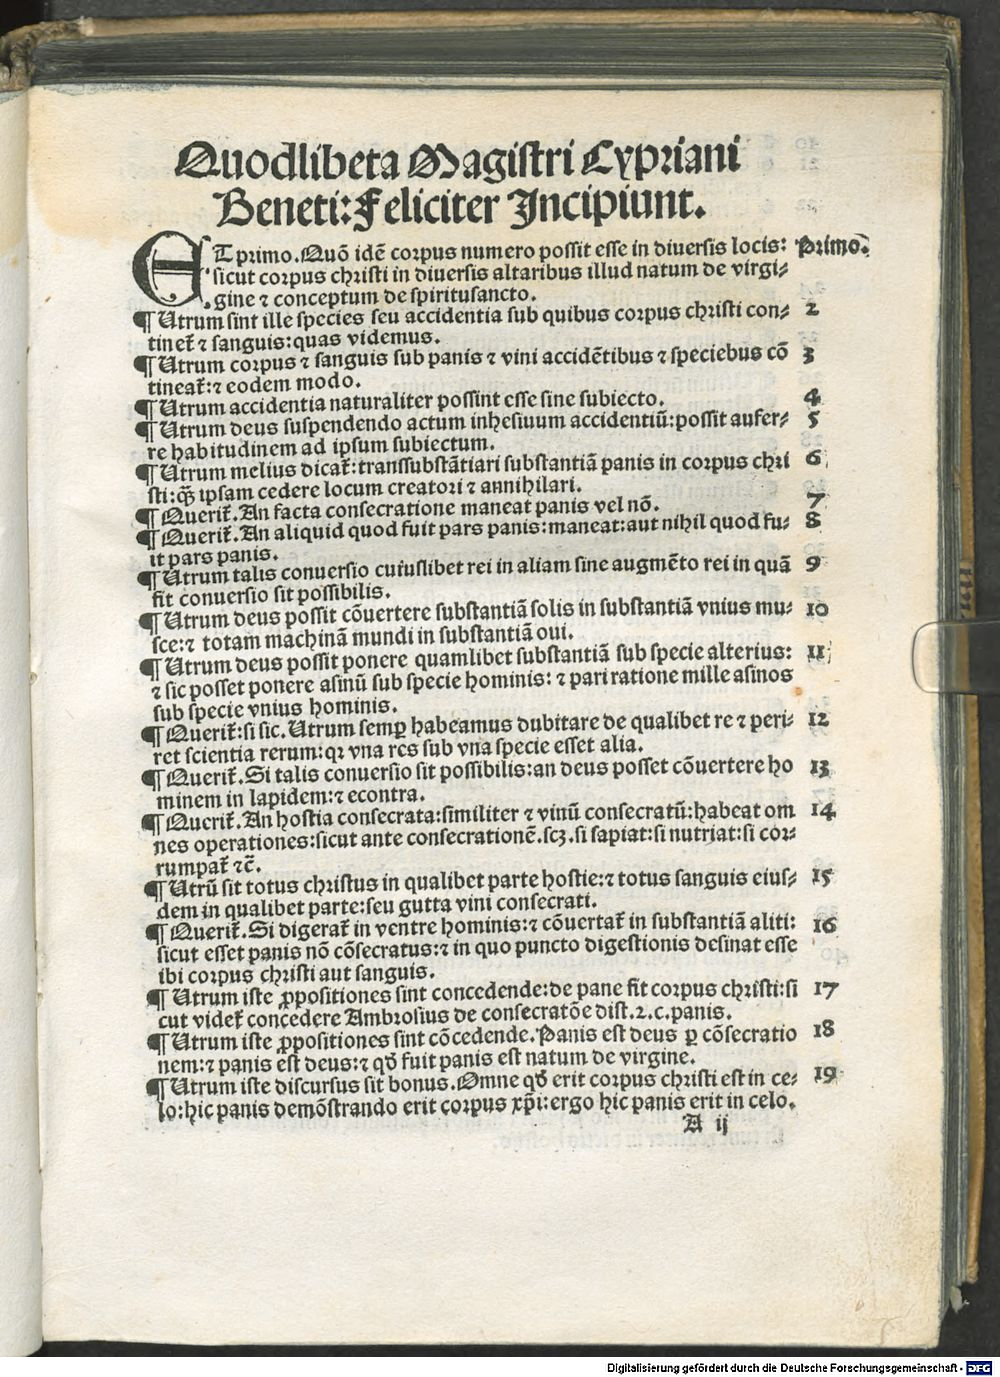 Quodlibeta Magistri Cypriani
Beneti: Feliciter Incipiunt.
ET primo. Quō idē corpus numero possit esse in diuersis locis: Primo.
sicut corpus christi in diuersis altaribus illud natum de virgi-
gine ⁊ conceptum de spiritusancto.
¶ Utrum sint ille species seu accidentia sub quibus corpus christi con- 2
tinet̄ ⁊ sanguis: quas videmus.
¶ Utrum corpus ⁊ sanguis sub panis ⁊ vini accidētibus ⁊ speciebus cō 3
tineat̄: ⁊ eodem modo.
¶ Utrum accidentia naturaliter possint esse sine subiecto. 4
¶ Utrum deus suspendendo actum inhesiuum accidentiū: possit aufer- 5
re habitudinem ad ipsum subiectum.
¶ Utrum melius dicat̄: transsubstātiari substantiā panis in corpus chri 6
sti: q̄ȝ ipsam cedere locum creatori ⁊ annihilari.
¶ Querit̄. An facta consecratione maneat panis vel nō. 7
¶ Querit̄. An aliquid quod fuit pars panis: maneat: aut nihil quod fu- 8
it pars panis.
¶ Utrum talis conuersio cuiuslibet rei in aliam sine augmēto rei in quā 9
fit conuersio sit possibilis.
¶ Utrum deus possit cōuertere substantiā solis in substantiā vnius mu- 10
sce: ⁊ totam machinā mundi in substantiā oui.
¶ Utrum deus possit ponere quamlibet substantiā sub specie alterius: 11
⁊ sic posset ponere asinū sub specie hominis: ⁊ pari ratione mille asinos
sub specie vnius hominis.
¶ Querit̄: si sic. Utrum semꝑ habeamus dubitare de qualibet re ⁊ peri- 12
ret scientia rerum: qꝛ vna res sub vna specie esset alia.
¶ Querit̄. Si talis conuersio sit possibilis: an deus posset cōuertere ho 13
minem in lapidem: ⁊ econtra.
¶ Querit̄. An hostia consecrata: similiter ⁊ vinū consecratū: habeat om 14
nes operationes: sicut ante consecrationē. scȝ. si sapiat: si nutriat: si cor-
rumpat̄ ⁊c̄.
¶ Utrū sit totus christus in qualibet parte hostie: ⁊ totus sanguis eius- 15
dem in qualibet parte: seu gutta vini consecrati.
¶ Querit̄. Si digerat̄ in ventre hominis: ⁊ cōuertat̄ in substantiā aliti: 16
sicut esset panis nō cōsecratus: ⁊ in quo puncto digestionis desinat esse
ibi corpus christi aut sanguis.
¶ Utrum iste ꝓpositiones sint concedende: de pane fit corpus christi: si 17
cut videt̄ concedere Ambrosius de consecratōe dist. 2. c. panis.
¶ Utrum iste ꝓpositiones sint cōcedende. Panis est deus ꝑ cōsecratio 18
nem: ⁊ panis est deus: ⁊ qď fuit panis est natum de virgine.
¶ Utrum iste discursus sit bonus. Omne qď erit corpus christi est in ce- 19
lo: hic panis demōstrando erit corpus xp̄i: ergo hic panis erit in celo.
A ij
Digitalisierung gefördert durch die Deutsche Forschungsgemeinschaft - DFG